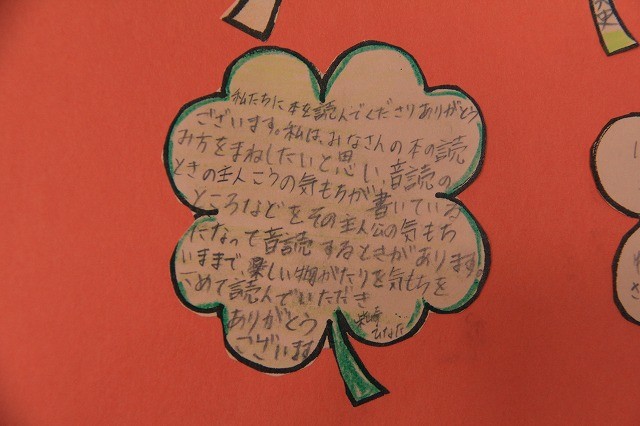 私たちに本を読んでくださりありがとう
ございます。私は、みなさんの本の読
み方をまねしたいと思い、音読の
ときの主人こうの気もちが、書いている
ところなどをその主人公の気もち
になって音読するときがあります。
いままで、楽しい物がたりを気もちを
こめて読んでいただき
ありがとう
ございます
ひなた